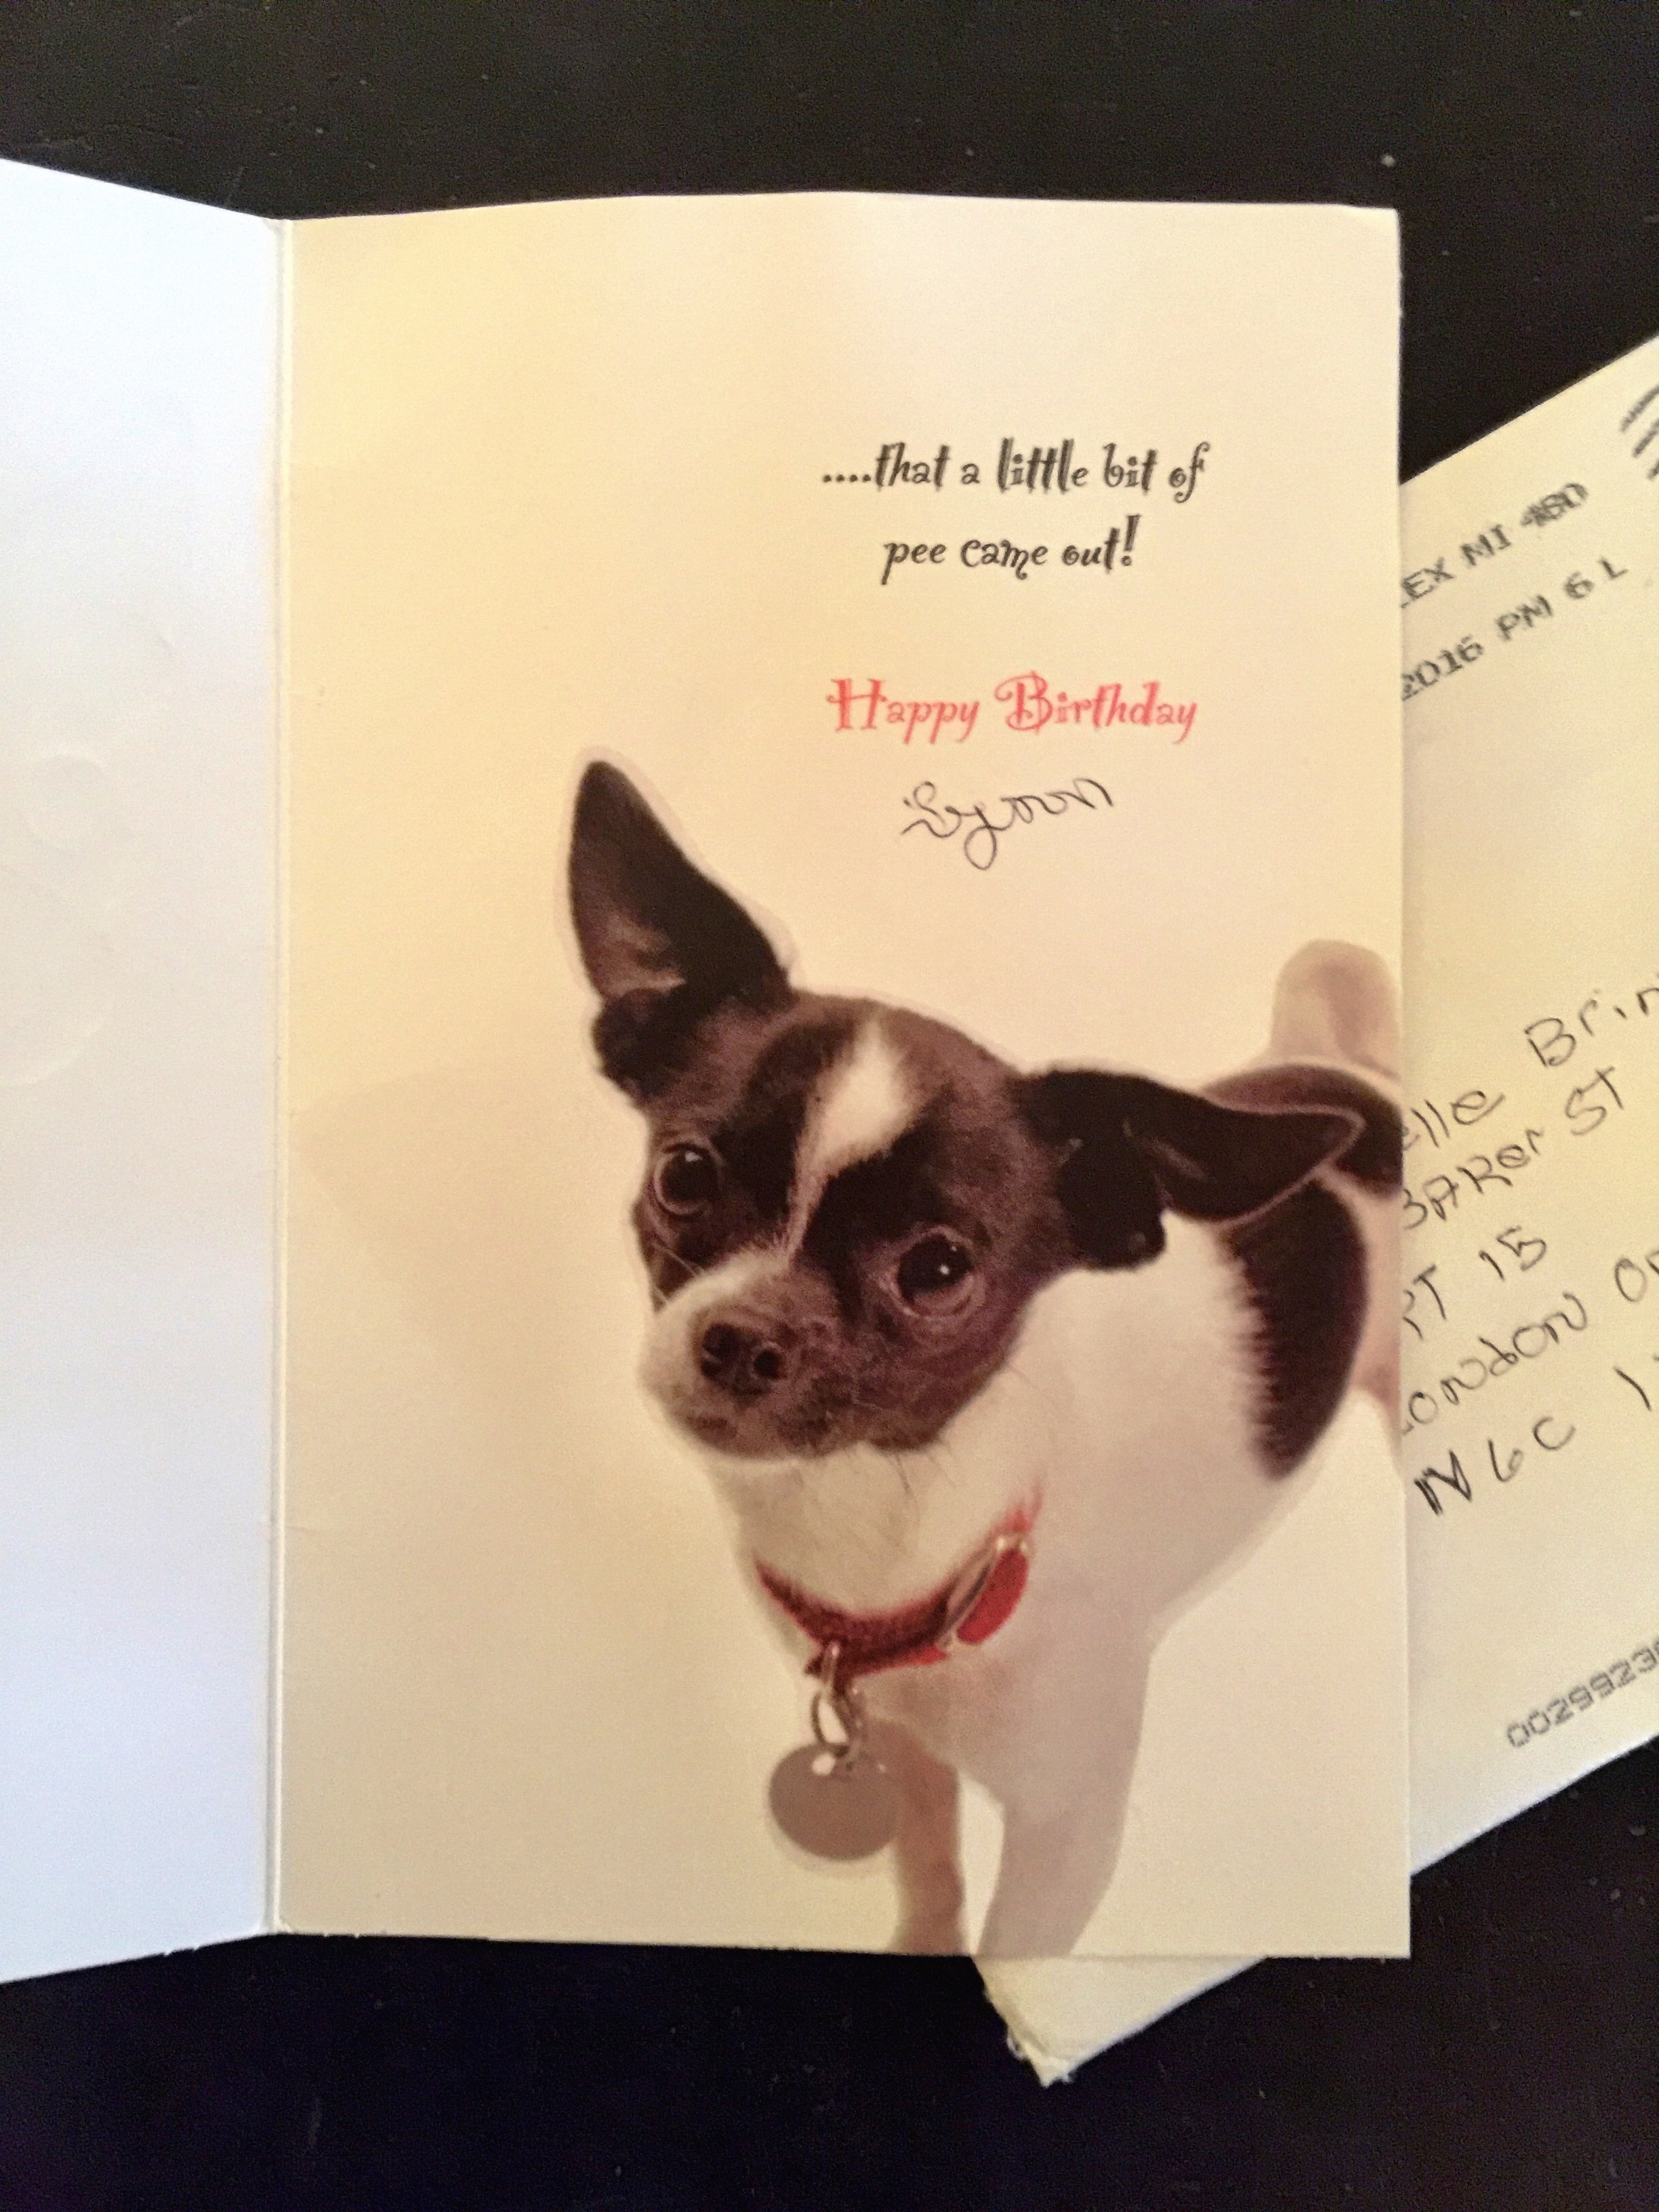 ....that a little bit of
pee came out!
Happy Birthday
EX MI 480
2016 PM 6 L
elle Brin
BAKer ST
PT 15
London On
N6C 1
0029923